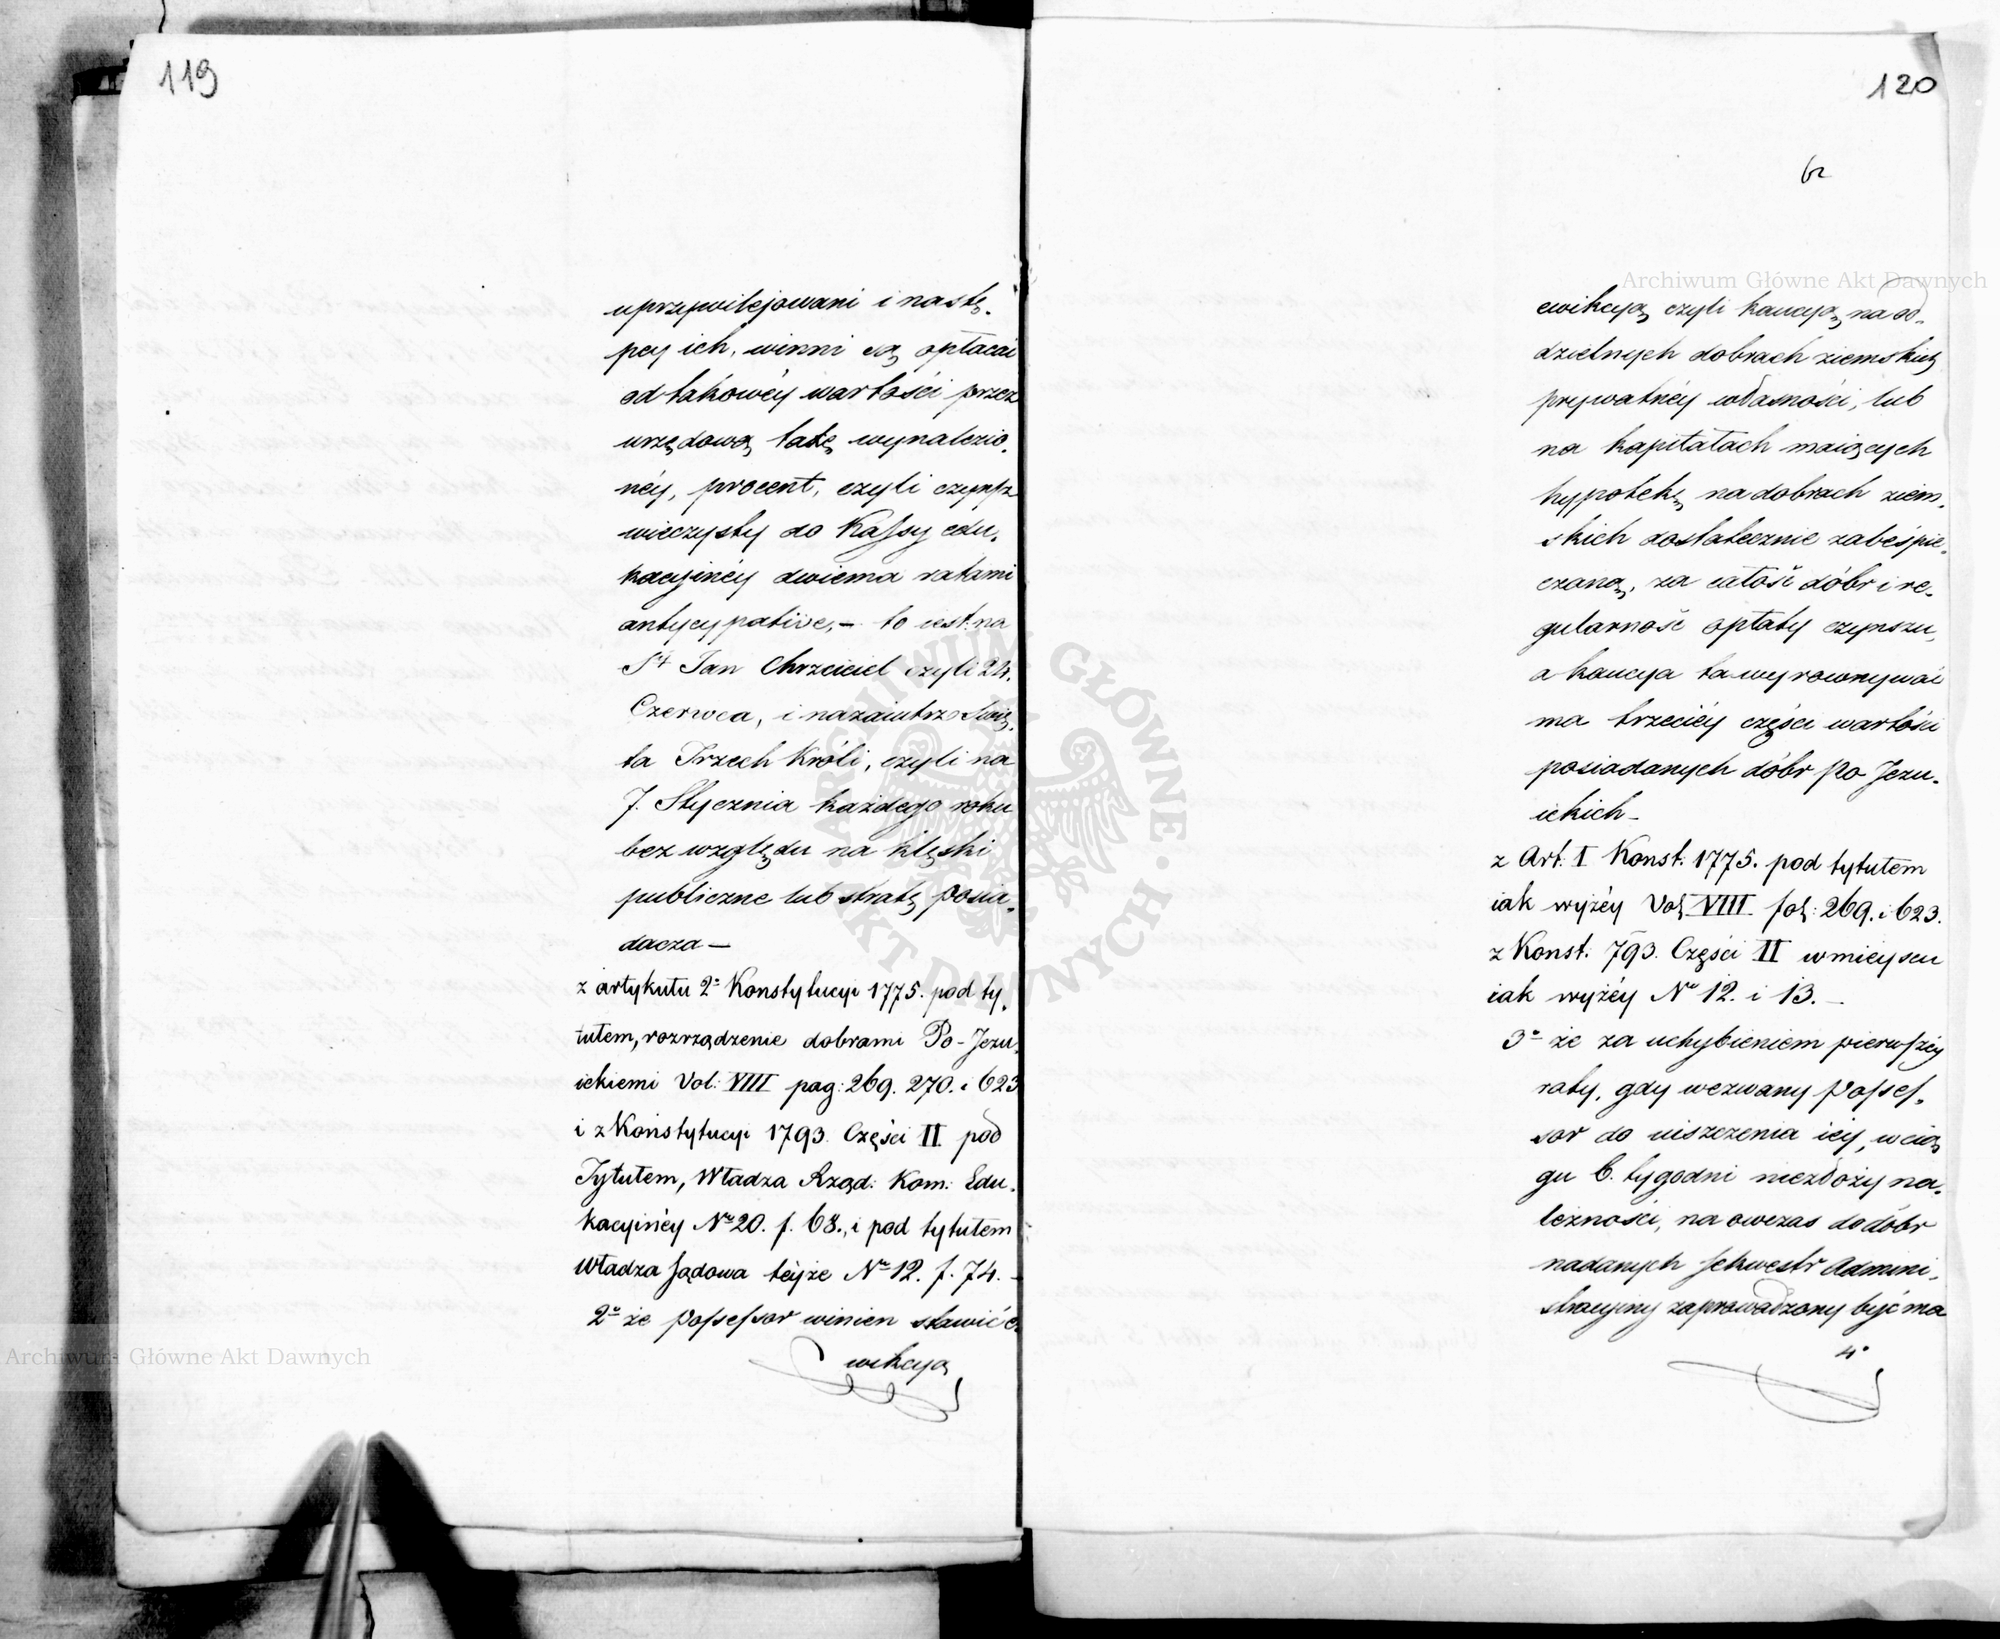 119
uprzywilejowani i nastę-
pcy ich, winni są opłacać
od takowéy wartości przez
urzędową taxę wynalezio-
néy, procent, czyli czynsz
wieczysty do Kassy edu-
kacyinéy dwiema ratami
antycypative, – to iest: na
St Jan Chrzciciel czyli 24.
Czerwca, i nazaiutrz Swię-
ta Trzech Króli, czyli na
7. Stycznia każdego roku
bez względu na klęski
publiczne lub stratę posia-
dacza —
z artykułu 2o Konstytucyi 1775. pod ty-
tułem, rozrządzenie dobrami Po-Jezu-
ickiemi Vol: VIII pag: 269. 270. i 623
i z Konstytucyi 1793. Części II pod
Tytułem, Władza Rząd: Kom: Edu-
kacyinéy No 20. f. 68., i pod tytułem
Władza sądowa téyże No 12. f. 74. –
2o że possessor winien stawić e-
wikcyą
120
ewikcyą czyli kaucyą, na od-
dzielnych dobrach ziemskich
prywatnéy własności, lub
na kapitałach maiących
hypotekę na dobrach ziem-
skich dostatecznie zabeśpie-
czaną, za całość dóbr i re-
gularność opłaty czynszu,
a kaucya ta wyrownywać
ma trzeciéy części wartości
posiadanych dóbr po Jezu-
ickich –
z Art: I Konst: 1775. pod tytułem
iak wyżéy Vol VIII fol: 269. i 623.
z Konst: 793. Części II w mieyscu
iak wyżéy No 12. i 13. –
3o że za uchybieniem pierwszéy
raty, gdy wezwany posses-
sor do uiszczenia iéy, w cią
gu 6. tygodni niezłoży na-
leżności, na owczas do dóbr
nadanych sekwestr Admini-
stracyiny zaprowadzony być ma
4o
Archiwum Główne Akt Dawnych
Archiwum Główne Akt Dawnych
ARCHIWUM GŁÓWNE AKT DAWNYCH